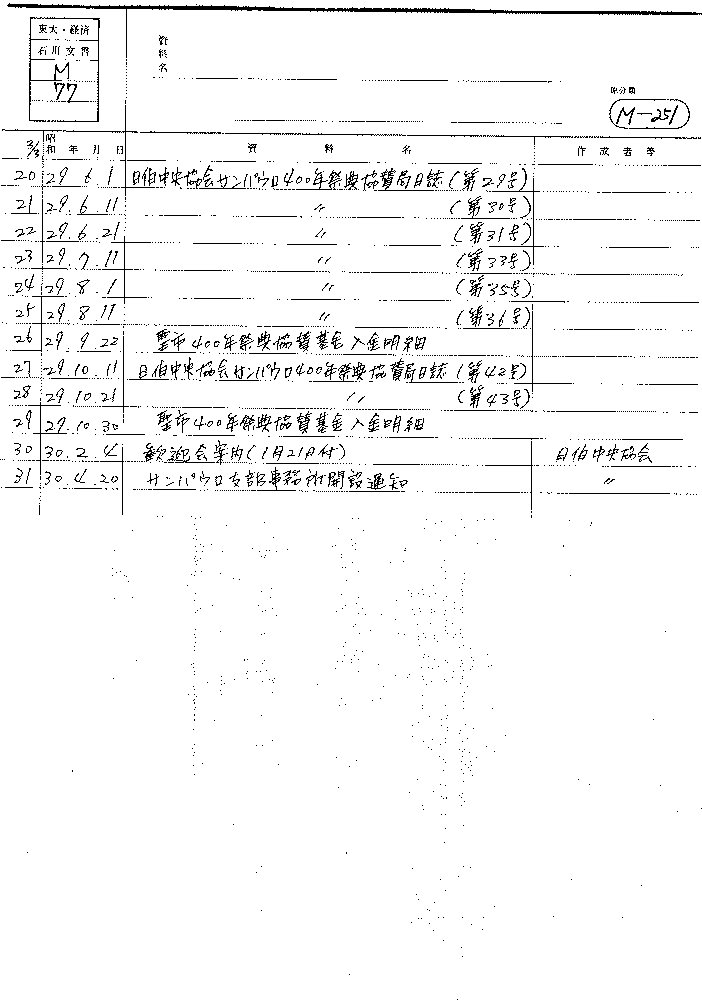 東大・経済
石川文書
M
77
資料名
原分類
M-251
2/3 昭和 年 月 日 資 料 名 作 成 者 等
20 29 6 1 日伯中央協会サンパウロ400年祭典協賛局日誌(第29号)
21 29. 6. 11 〃 (第30号)
22 29. 6. 21 〃 (第31号)
23 29. 7. 11 〃 (第33号)
24 29. 8. 1 〃 (第35号)
25 29 8 11 〃 (第36号)
26 29. 9. 22 聖市400年祭典協賛基金入金明細
27 29. 10. 11 日伯中央協会サンパウロ400年祭典協賛局日誌(第42号)
28 29. 10 21 〃 (第43号)
29 29. 10. 30 聖市400年祭典協賛基金入金明細
30 30. 2. 4 歓迎会案内(1月21日付) 日伯中央協会
31 30. 4. 20 サンパウロ支部事務所開設通知 〃